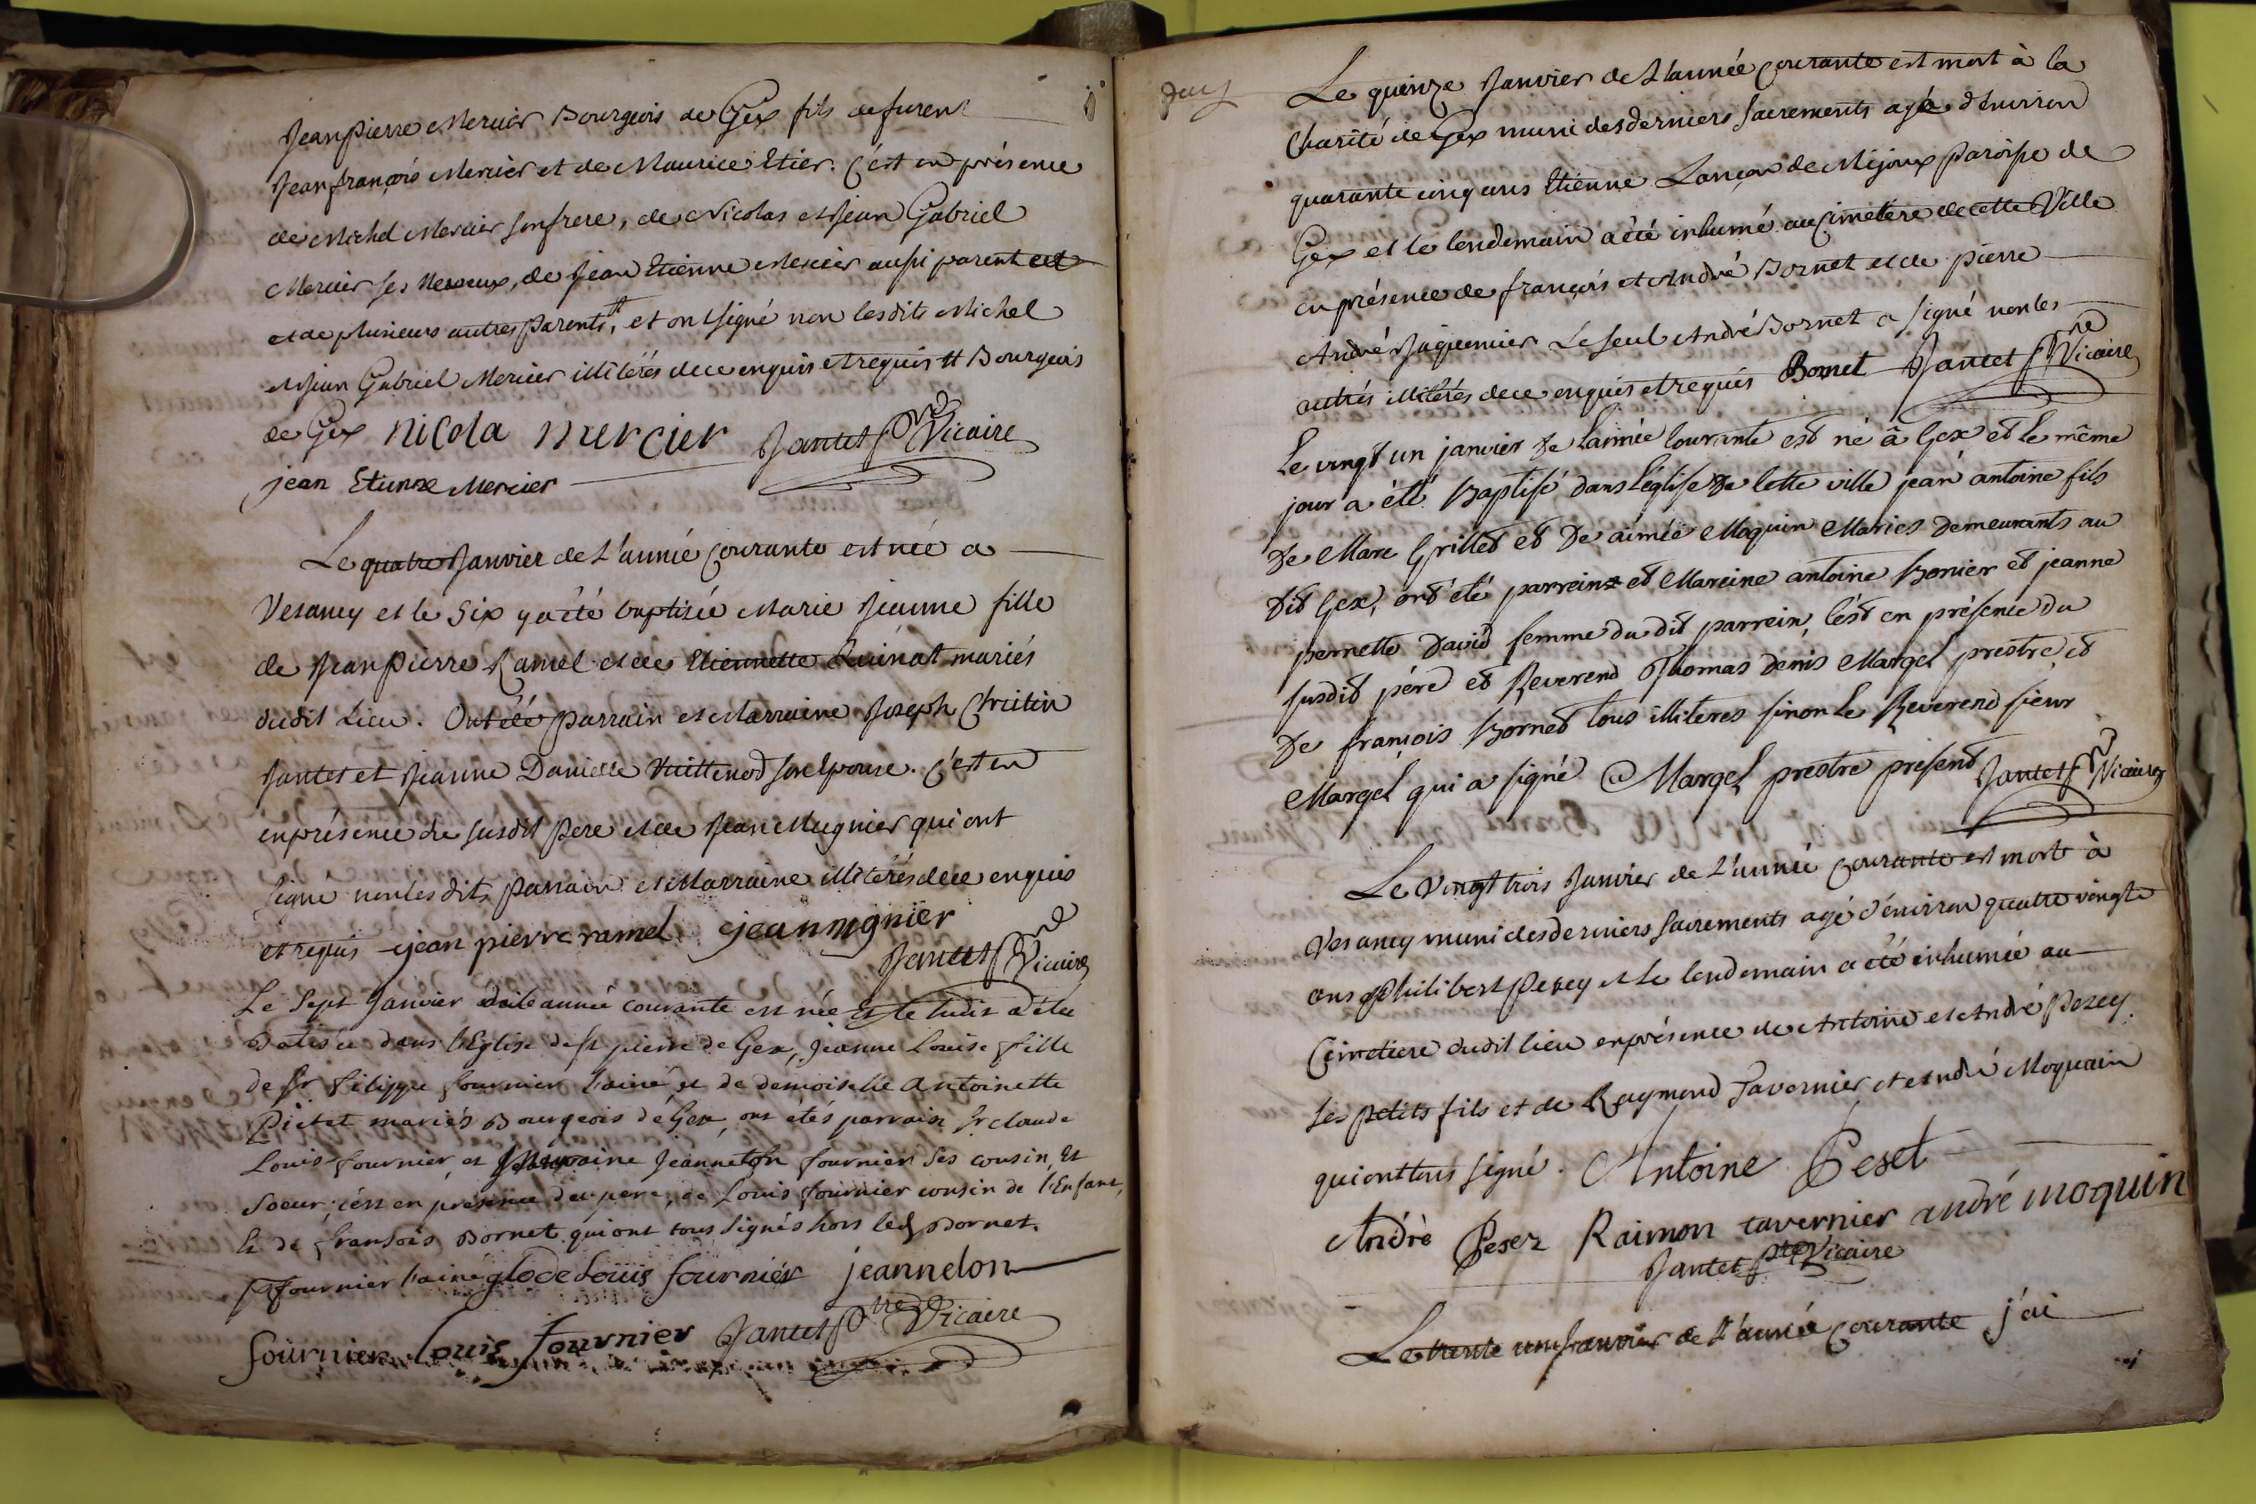 Jean Pierre Mercier Bourgeois de Gex fils de furent
Jean françois Mercier et de Maurice Etier. C'est en présence
de Michel Mercier son frere, de Nicolas et Jean Gabriel
Mercier ses Neveux, de Jean Etienne Mercier aussi parent
et de plusieurs autres parents ⧺, et ont signé non les dits Michel
et Jean Gabriel Mercier illiterés de ce enquis et requis ⧺ Bourgeois
de Gex nicola mercier Jantet Ptre Vicaire
jean Etienne Mercier
Le quatre Janvier de L'année Courante est née a
Vesancy et le Six y a été baptisée Marie Jeanne fille
de Jean Pierre Ramel et de Etiennette mariés
dudit Lieu. Ont été parrain et Marraine Joseph Christin
Jantet et Jeanne Danielle Vuittenod son Epouse. C'est en
en présence du susdit Pere et de Jean Mugnier qui ont
signé non les dits Parrain et Marraine illiterés de ce enquis
et requis jean pierre ramel jean mgnier
Jantet Ptre Vicaire
Le Sept Janvier de l'année courante est née et le ludit a été
Batisée dans l'Eglise de st pierre de Gex, Jeanne Louise fille
de Sr filippe fournier l'ainé et de demoiselle Antoinette
Pictet mariés Bourgeois dé Gex, ont étés parrain Sr claude
Louis fournier et Marraine Jeanneton fournier ses cousin, Et
Soeur; c'est en présence du pere, de Louis fournier cousin de l'Enfant,
Et de fransois Bornet qui ont tous signés hors led Bornet.
P fournier l'ainé glode Louis fournier jeannelon
fournier Louis fournier Jantet Ptre Vicaire
deux
Le quinze Janvier de L'année Courante est mort à la
Charité de Gex muni des derniers Sacrements agé d'Environ
quarante cinq ans Etienne Lançon de Mijoux Paroisse de
Gex et le lendemain a été inhumé au Cimetere de cette Ville
en présence de françois et André Bornet et de pierre
André Jaquemier Le seul André Bornet a signé non les
autrés illiterés de ce enquis et requis Bornet Jantet Ptre Vicaire
Le vingt un janvier De l'année Courante est né â Gex et le même
jour a été Baptisé dans l'église De Cette ville jean antoine fils
De Marc Grillet et De aimée Moquin Mariés Demeurants au
Dit Gex, ont été parrein et Mareine antoine Bonier et jeanne
pernette David femme du dit parrein, C'est en présence du
susdit pére et Reverend Thomas denis Margel prestre, et
De françois Bornet tous illiteres sinon Le Reverend sieur
Margel qui a signé Margel prestre présent Jantet Ptre Vicaire
Le Vingt trois Janvier de L'année Courante est mort à
Vesancy muni des derniers Sacrements agé d'environ quatre vingts
ans Philibert Pezey et le lendemain a été inhumé au
Cimetiere dudit lieu en présence de Antoine et André Pezey
ses petits fils et de Raymond Tavernier et André Moquain
qui ont tous signé. Antoine Peset
André Pesez Raimon tavernier andré moquin
Jantet Ptre Vicaire
Le trente un Janvier de L'année Courante j'ai